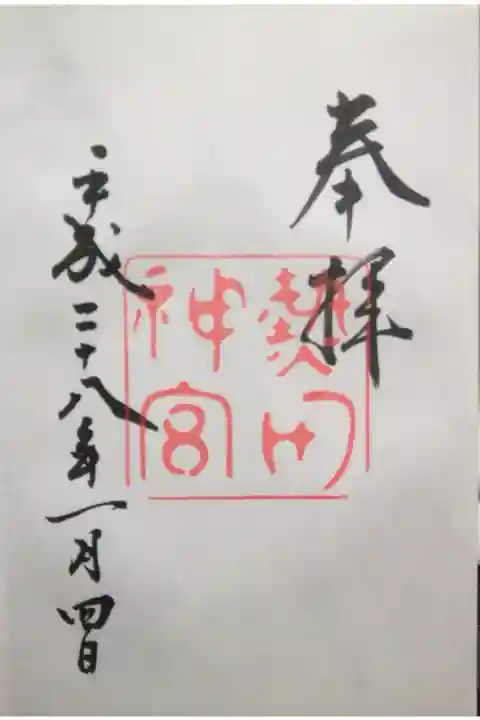 奉拝
熱田
神宮
平成二十八年一月四日